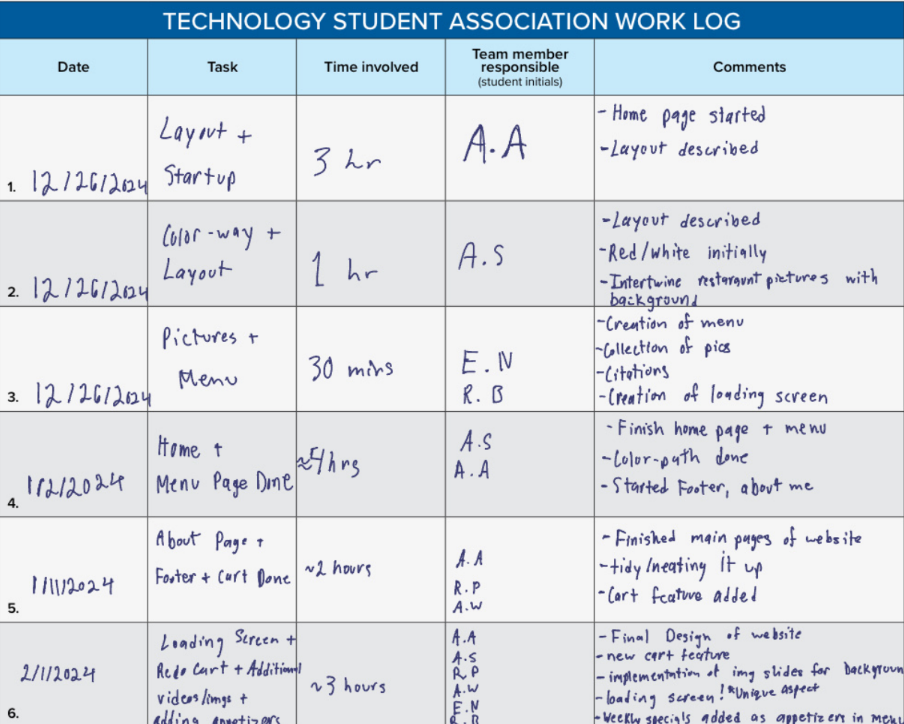 TECHNOLOGY STUDENT ASSOCIATION WORK LOG
Date
Task
Time involved
Team member
responsible
(student initials)
Comments
1. 12/26/2024
Layout +
Startup
3 hr
A.A
- Home page started
- Layout described
2. 12/26/2024
Color-way +
Layout
1 hr
A.S
- Layout described
- Red/White initially
- Intertwine restaraunt pictures with
background
3. 12/26/2024
Pictures +
Menu
30 mins
E.N
R.B
- Creation of menu
- Collection of pics
- Citations
- Creation of loading screen
4. 1/2/2024
Home +
Menu Page Done
hrs
A.S
A.A
- Finish home page + menu
- Color-path done
- Started Footer, about me
5. 1/11/2024
About Page +
Footer + Cart Done
~2 hours
A.A
R.P
A.W
- Finished main pages of website
- tidy/neating it up
- Cart feature added
6. 2/1/2024
Loading Screen +
Redo Cart + Additional
videos/imgs +
adding appetizers
~3 hours
A.A
A.S
R.P
A.W
E.N
R.B
- Final Design of website
- new cart feature
- implementation of img slides for backgroun
- loading screen! *Unique aspect
- Weekly specials added as appetizers in Menu